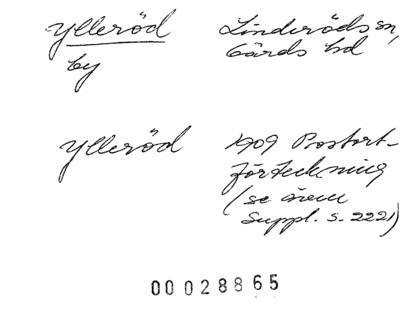 Ylleröd Linderöds sn,
by Gärds hd
Ylleröd 1909 Postort-
förteckning
(se även
Suppl. s. 2221)
00028865